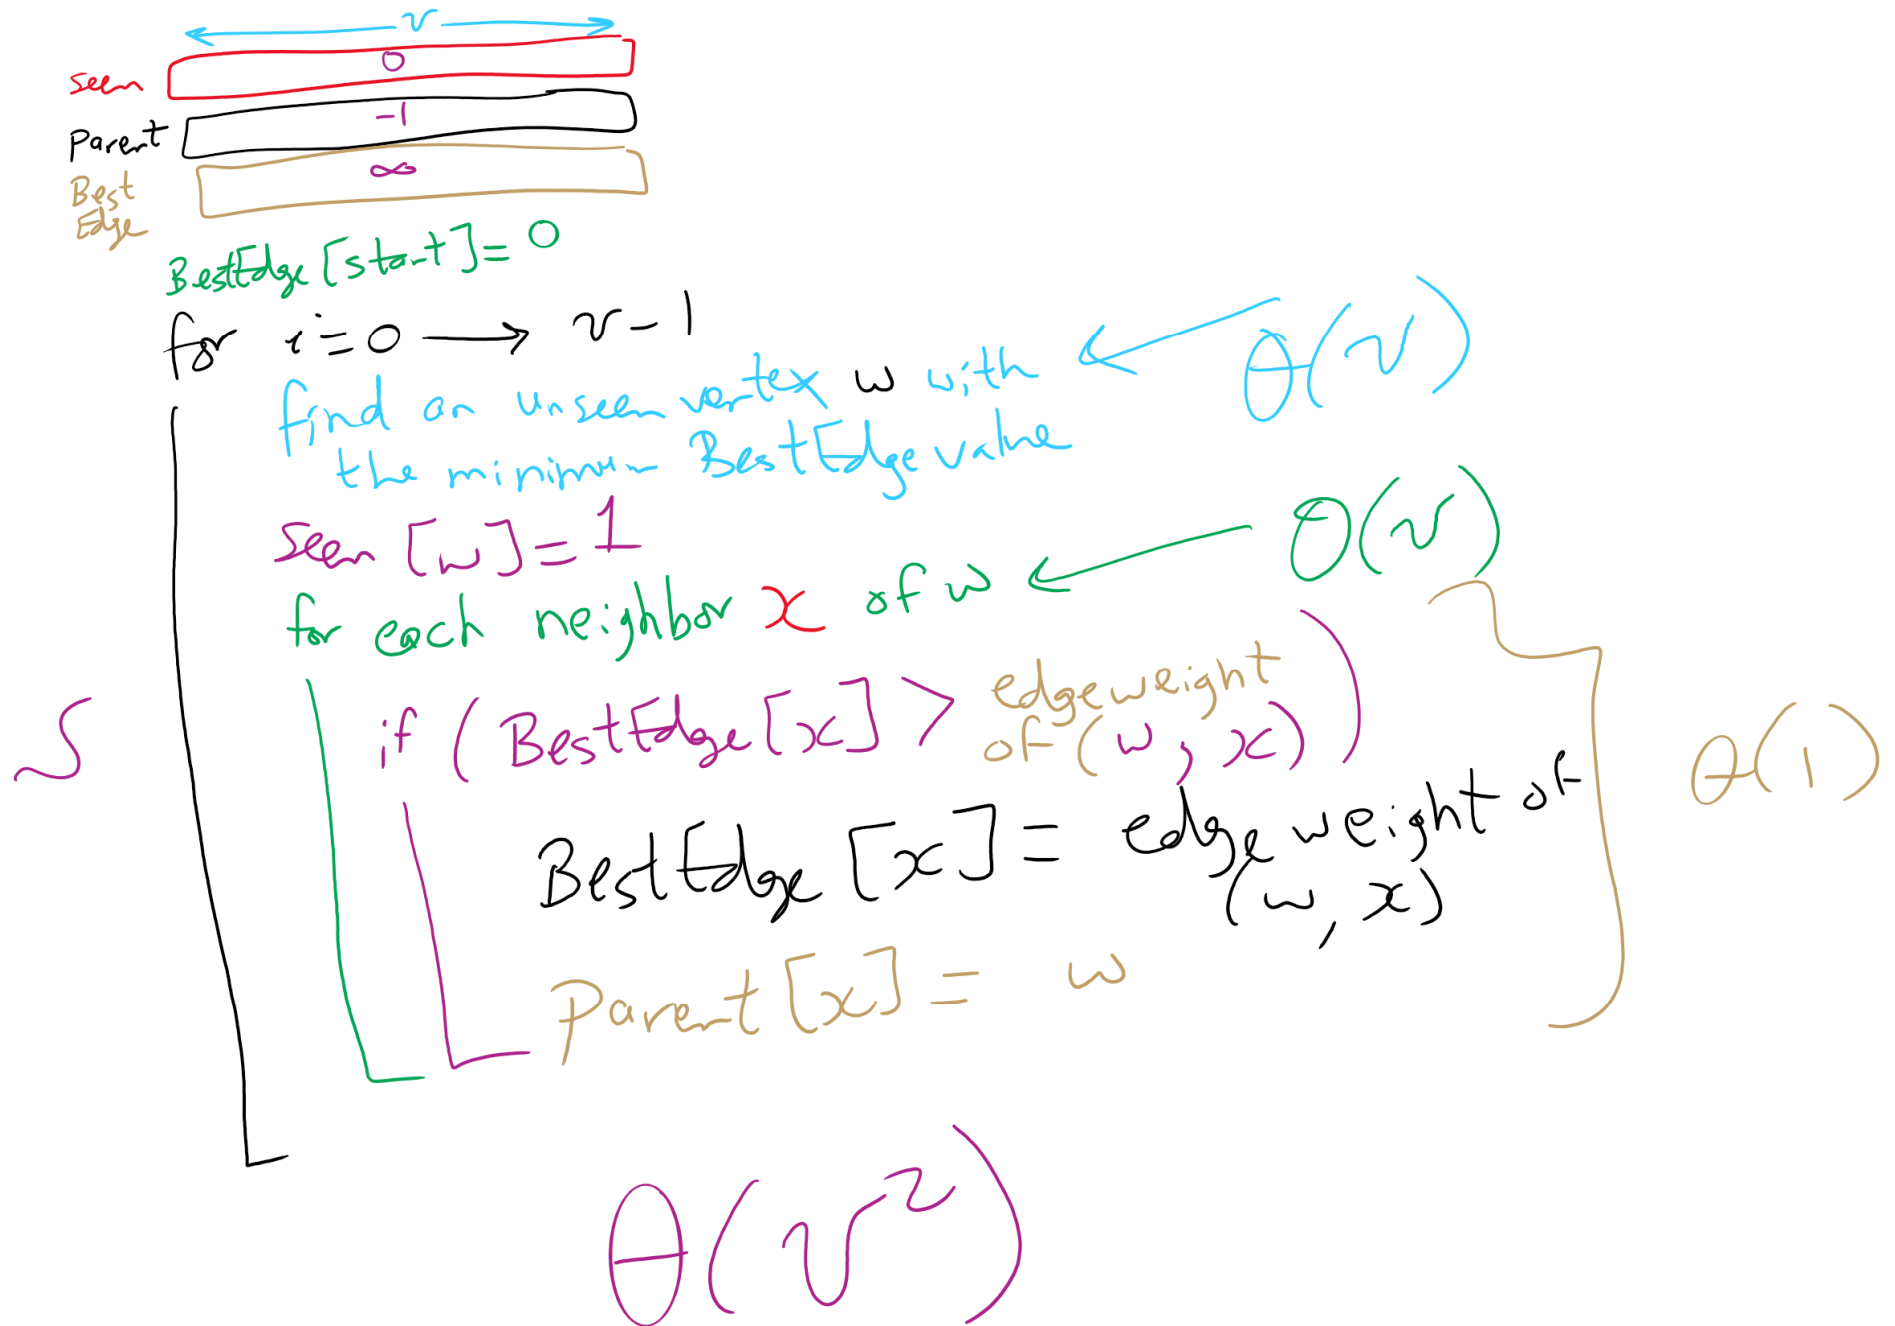 v
seen 0
Parent -1
Best Edge ∞
BestEdge[start]= 0
for i=0 → v-1
find an unseen vertex w with ← θ(v)
the minimum BestEdge value
seen [w]= 1
for each neighbor x of w ← O(v)
if (BestEdge[x] > edgeweight of (w, x))
BestEdge[x]= edge weight of (w, x)
Parent[x]= w
θ(1)
θ(v²)